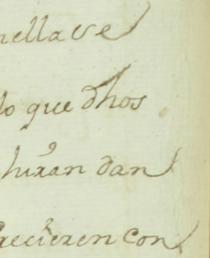 nellave
lo que dhos
huxan dan
xecieren con